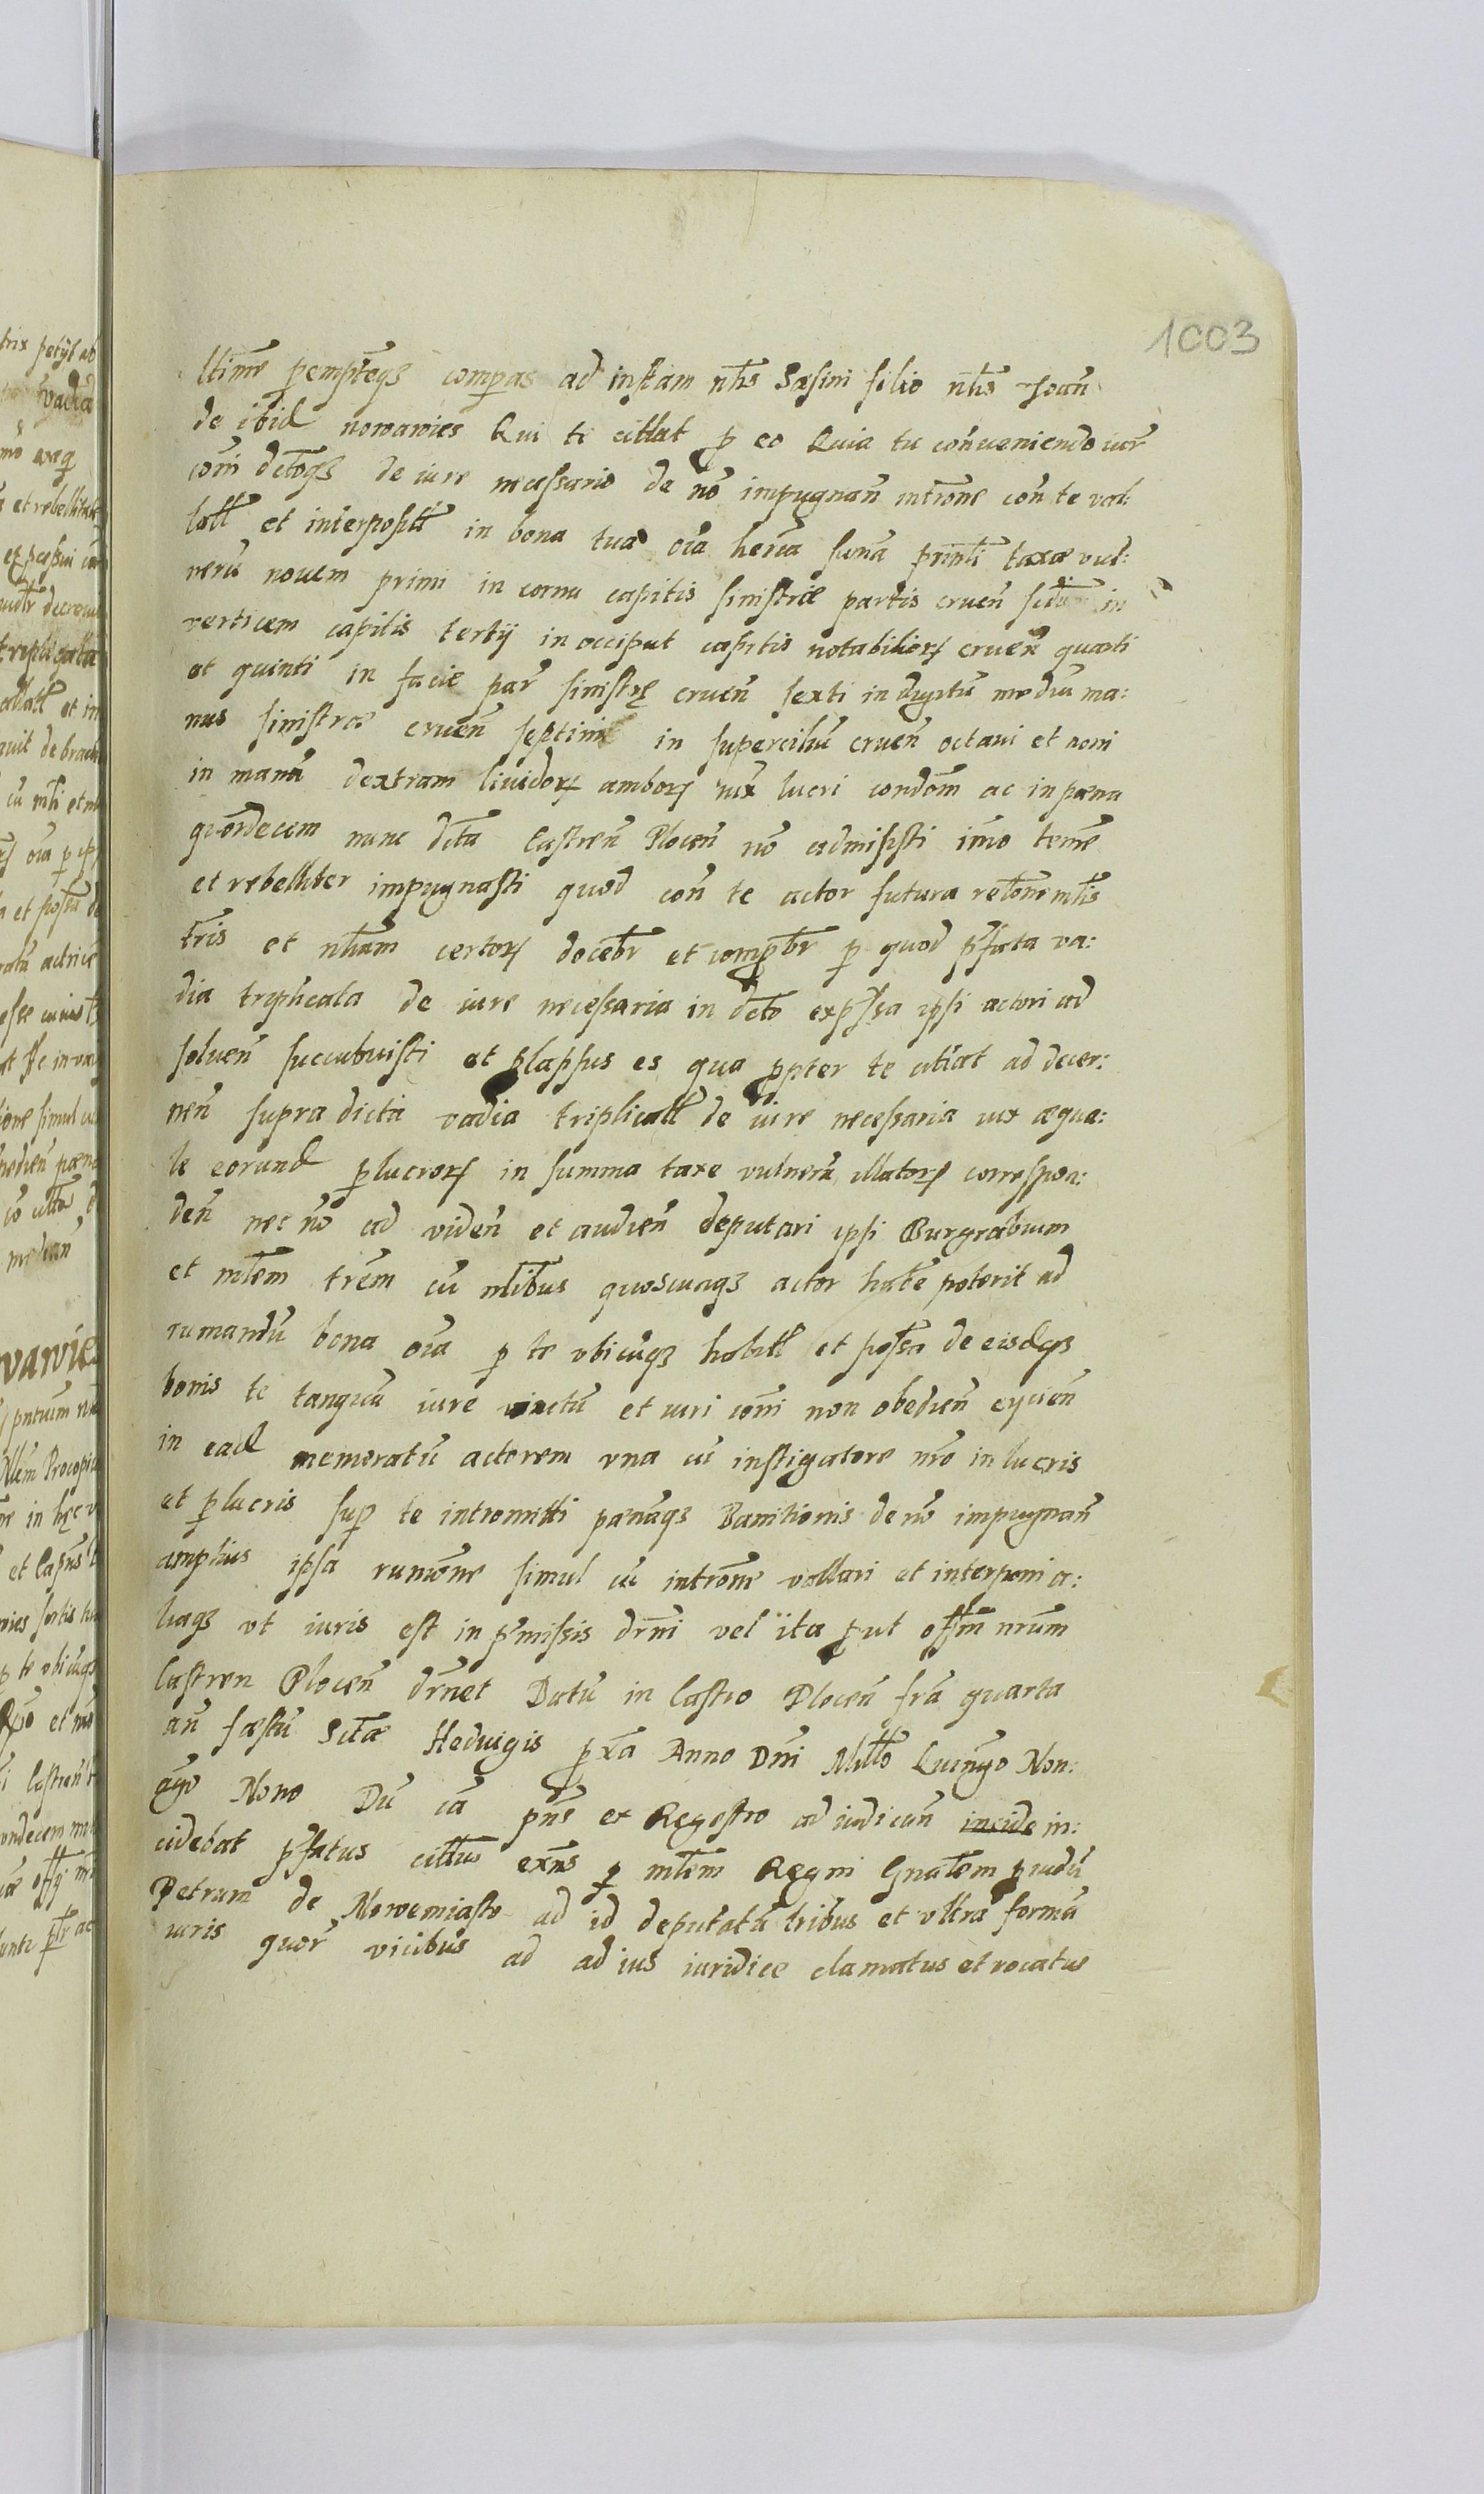 1003
ltime pempteqȝ comperas ad instam nlis Sasini filio nlis Joan
de ibid nowawies Qui te cittat p eo Quia tu conueniendo iur
coi dctoqȝ de iure necessario de no impugnan intrōne con te val:
latt et interposit in bona tua oia heria suma prinli taxæ vul:
neru nouem primi in cornu capitis sinistræ partis cruen scdi in
verticem capitis tertij in occiput capitis notabilior cruen quarti
et quinti in facie par sinistrę cruen sexti in digitu mediu ma:
nus sinistræ cruen septimi in superciliu cruen octaui et noni
in manu dextram liuidor ambor iux lucri condem ac in pæna
quordecem nunc dcta Castren Plocen no admisisti imo teme
et rebelliter impugnasti quod con te actor futura relone mlis
tris et nlium certor docebr et compbr p quod pfata va:
dia triplicata de iure necessaria in dcto expssa ipsi actori ad
soluen succubuisti et plapsus es qua ppter te citat ad decer:
nen supra dicta vadia triplicatt de iure necessaria iux æqua:
le eorund plucror in summa taxe vulneru illator correspon:
den nec no ad viden et audien deputari ipsi Burgrabium
et mlem trem cu nlibus quoscunqȝ actor habe poterit ad
rumandu bona oia p te vbicuqȝ habitt et possa de eisdqȝ
bonis te tanquu iure victu et iuri coni non obedien eijcien
in ead memoratu actorem vna cu instigatore nro in lucris
et plucris sup te intromitti pænaqȝ Banitionis de no impugnan
amplius ipsa rumōne simul cu intrōne vallari et interponi a:
liaqȝ vt iuris est in pmissis drni vel ita put offm nrum
Castren Plocen drnet Datu in Castro Plocen fra quarta
an fæstu Sctæ Heduigis pxa Anno Dni Millo Quingo Non:
ago Nono Du ca pns ex Regestro ad iudican incide in:
cidebat pfatus cittus exns p mlem Regni Gnalem pudu
Petrum de Nowemiasto ad id deputatu tribus et vltra forma
iuris quor vicibus ad ad ius iuridice clamatus et vocatus